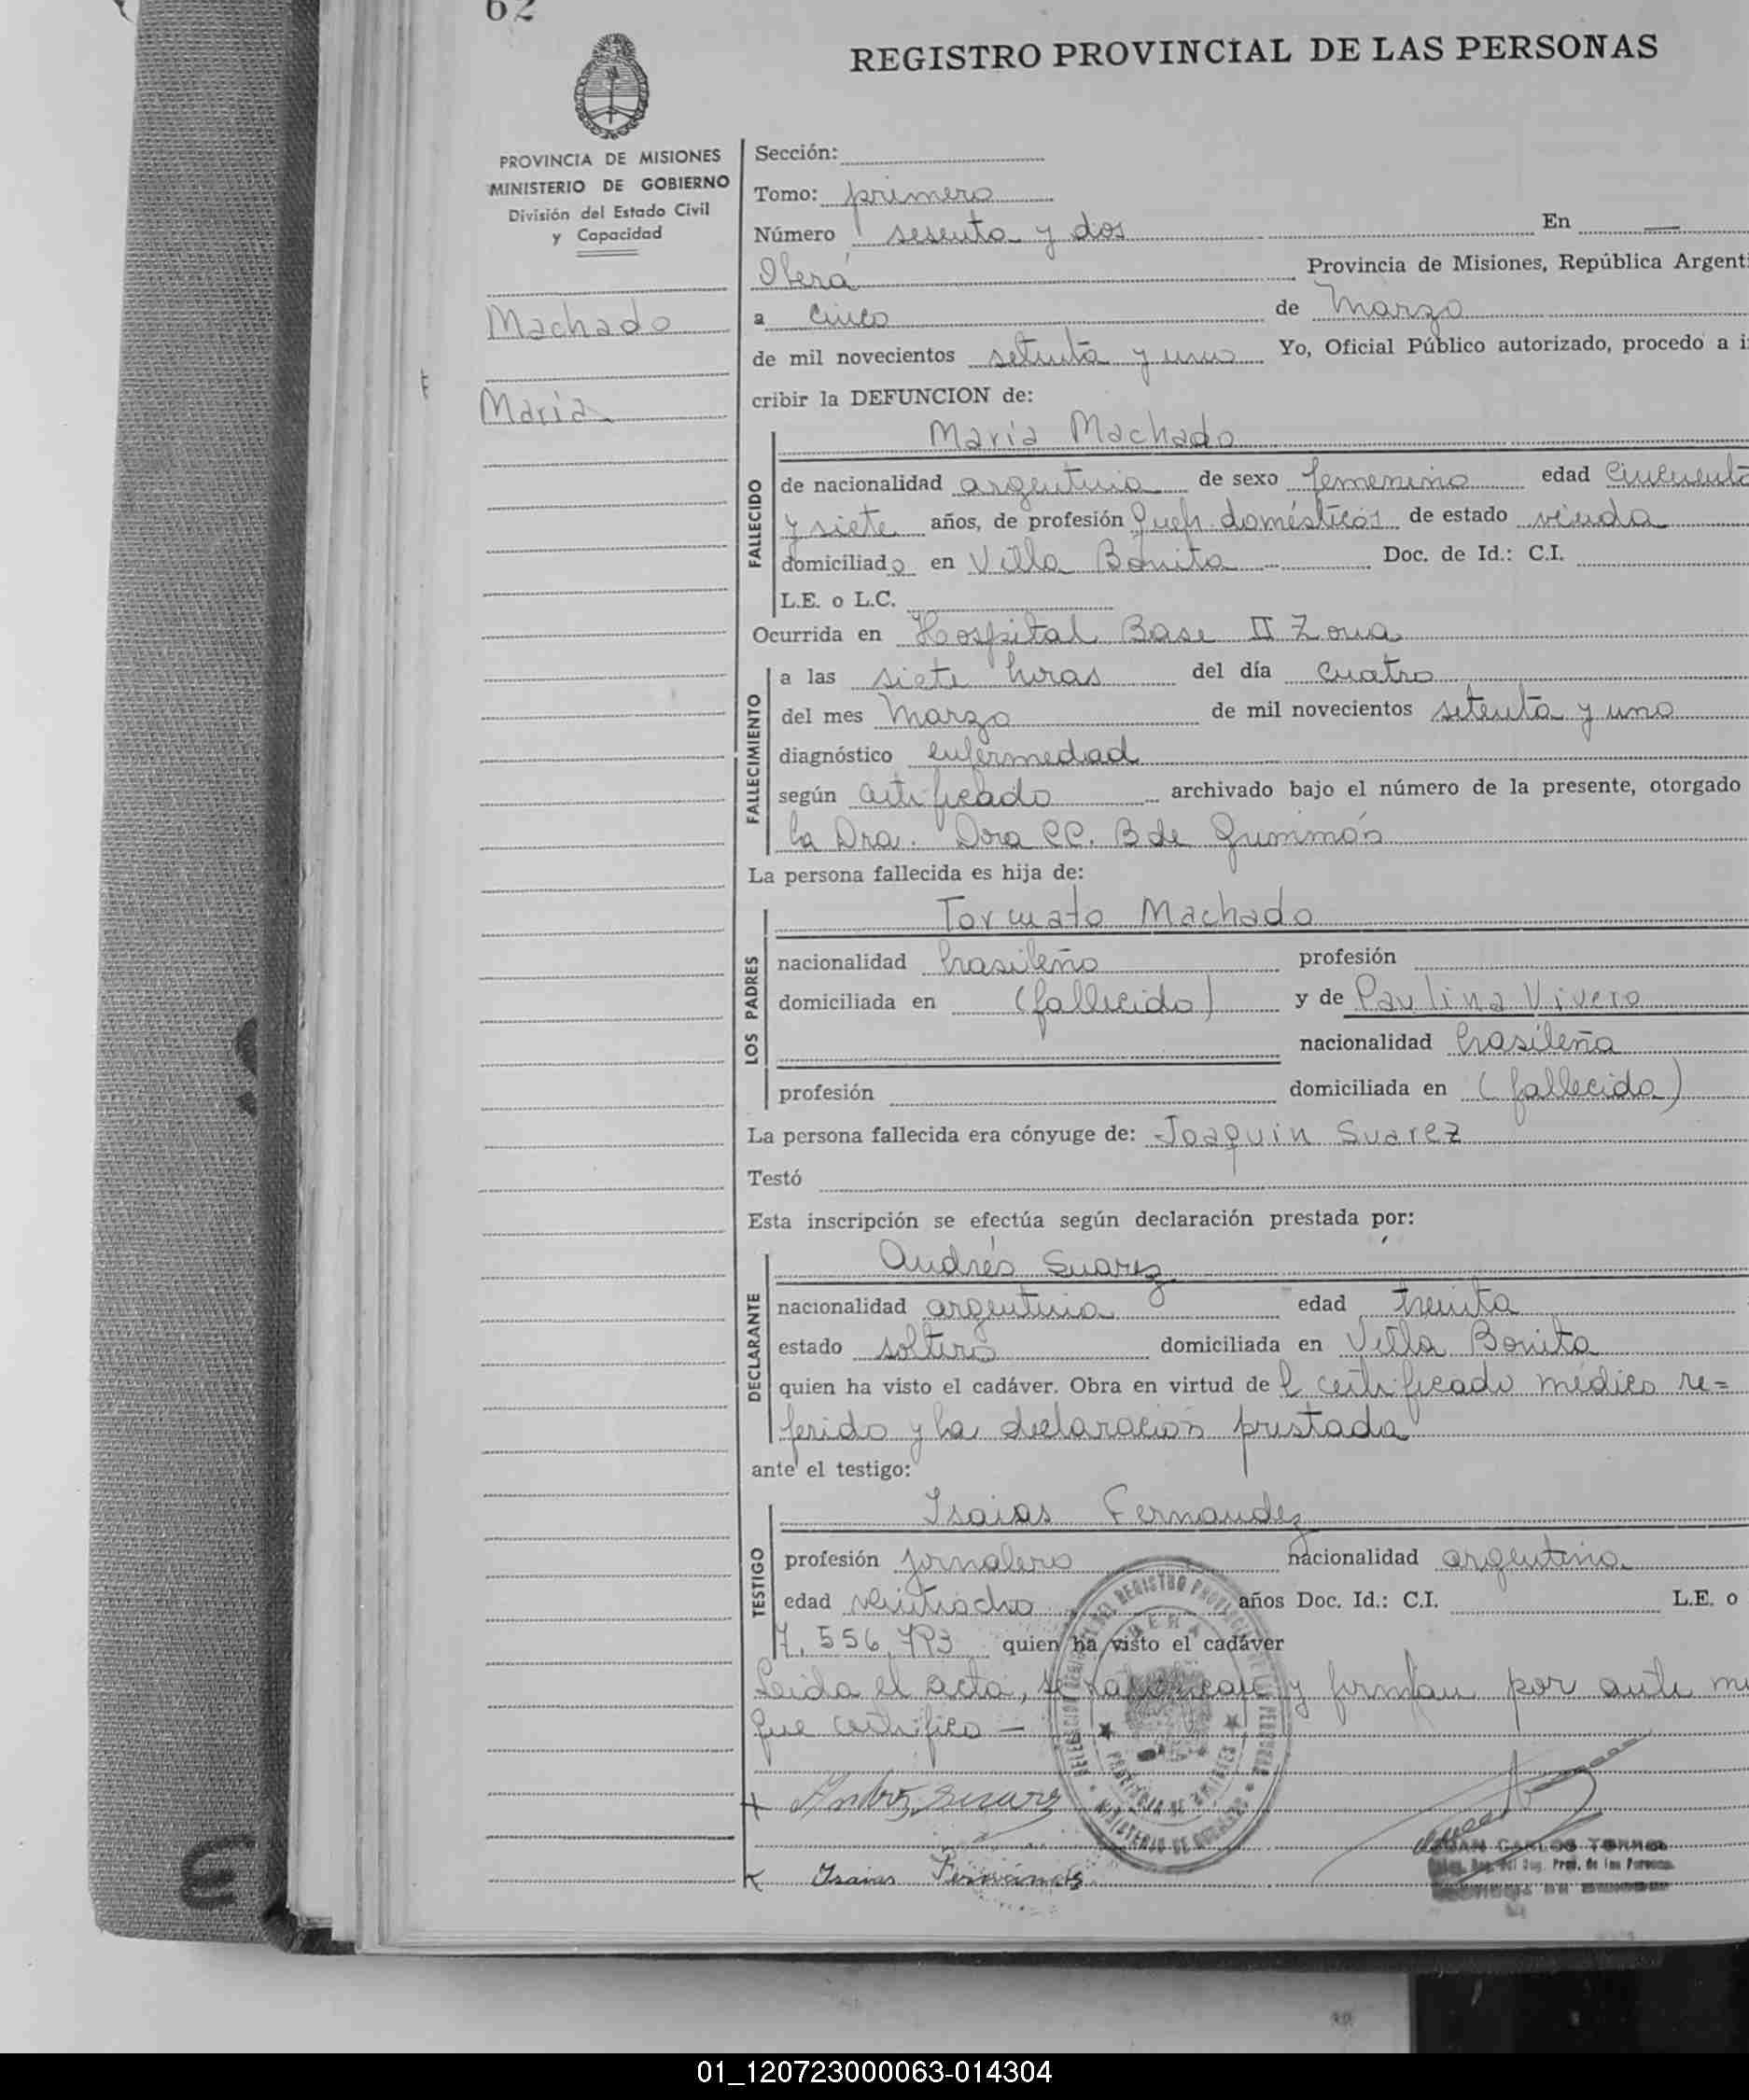 62
REGISTRO PROVINCIAL DE LAS PERSONAS
PROVINCIA DE MISIONES
MINISTERIO DE GOBIERNO
División del Estado Civil
y Capacidad
Machado
María
Sección:
Tomo: primero
Número sesenta y dos En —
Oberá Provincia de Misiones, República Argenti
a cinco de Marzo
de mil novecientos setenta y uno Yo, Oficial Público autorizado, procedo a i
cribir la DEFUNCION de:
María Machado
FALLECIDO
de nacionalidad argentina de sexo femenino edad Cincuenta
y siete años, de profesión Queh. domésticos de estado viuda
domiciliado en Villa Bonita Doc. de Id.: C.I.
L.E. o L.C.
Ocurrida en Hospital Base II Zona
FALLECIMIENTO
a las siete horas del día cuatro
del mes Marzo de mil novecientos setenta y uno
diagnóstico enfermedad
según certificado archivado bajo el número de la presente, otorgado
la Dra. Dora CC. B de
La persona fallecida es hija de:
LOS PADRES
Torcuato Machado
nacionalidad brasileño profesión
domiciliada en (fallecido) y de Paulina Vivero
nacionalidad brasileña
profesión domiciliada en (fallecida)
La persona fallecida era cónyuge de: Joaquin Suarez
Testó
Esta inscripción se efectúa según declaración prestada por:
DECLARANTE
Andrés Suarez
nacionalidad argentina edad treinta
estado soltero domiciliada en Villa Bonita
quien ha visto el cadáver. Obra en virtud de l certificado médico re=
ferido y la declaración prestada
ante el testigo:
TESTIGO
Isaias Fernandez
profesión jornalero nacionalidad argentina
edad veintiocho años Doc. Id.: C.I. L.E. o
7.556.793 quien ha visto el cadáver
Leida el acta, se ratifican y firman por ante mi
que certifico —
Andrez Suarez
Isaias Fernandez
JUAN CARLOS TORRES
Prov. de las Personas
01_120723000063-014304